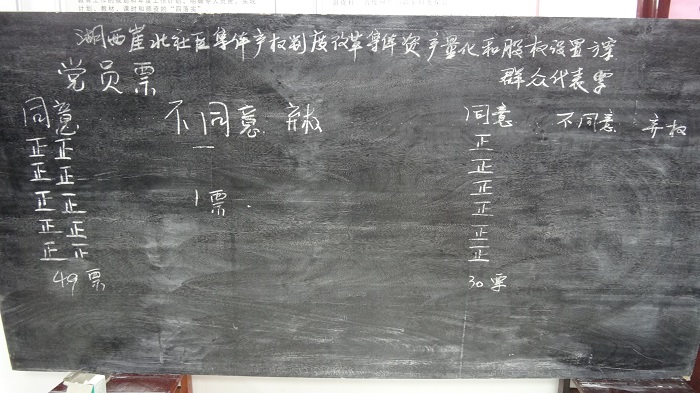 湖西崖北社区集体产权制度改革集体资产量化和股权设置方案
党员票
群众代表票
同意 不同意 弃权
同意 不同意 弃权
正正 一
正
正正
正
正正 1票.
正
正
正正
正
正正
正
49票
30票